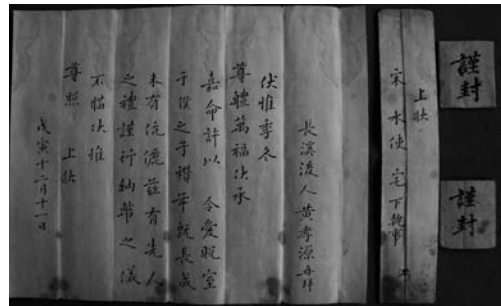 謹封
謹封
上狀
宋 水使 宅 下執事
長溪後人黃孝源再拜
伏惟季冬
尊體萬福伏承
嘉命許以 令愛貺室
于僕之子 年旣長成
未有伉儷玆有先人
之禮謹行納幣之儀
不備伏惟
尊照 上狀
戊寅十二月十一日